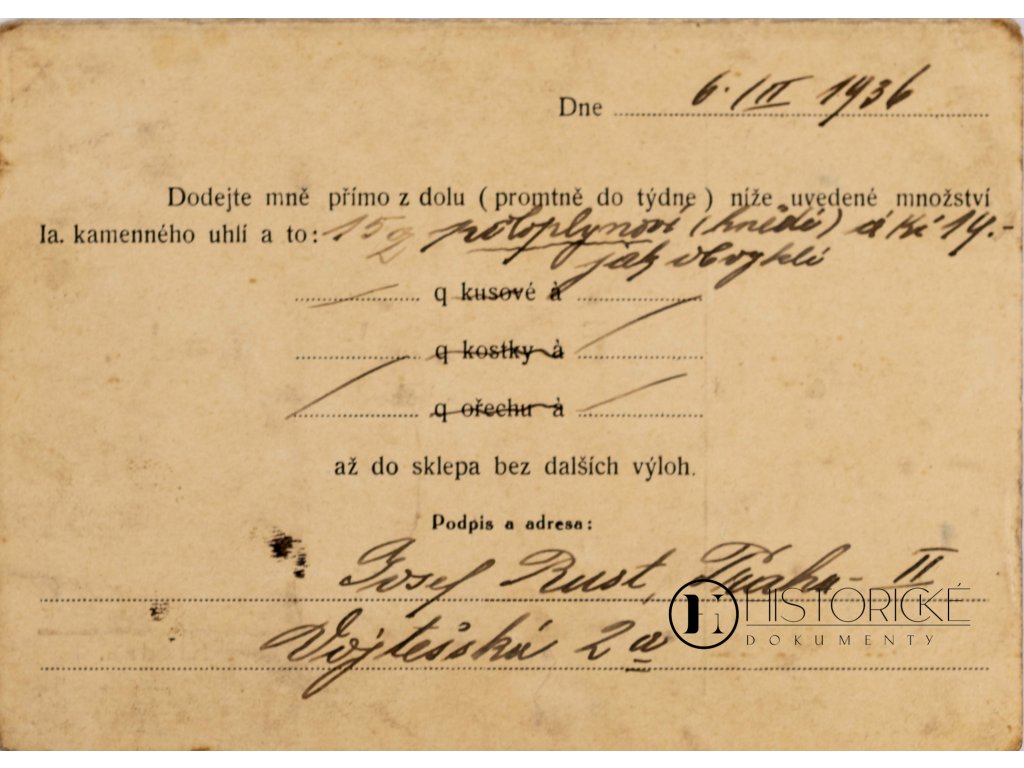 Dne 6./II 1936
Dodejte mně přímo z dolu (promtně do týdne) níže uvedené množství
Ia. kamenného uhlí a to: 15 q poloplynové (hnědé) á Kč 14.-
jak obvykle
q kusové à
q kostky à
q ořechu à
až do sklepa bez dalších výloh.
Podpis a adresa:
Josef Rust, Praha - II
Vojtěšská 2a
HISTORICKÉ
DOKUMENTY